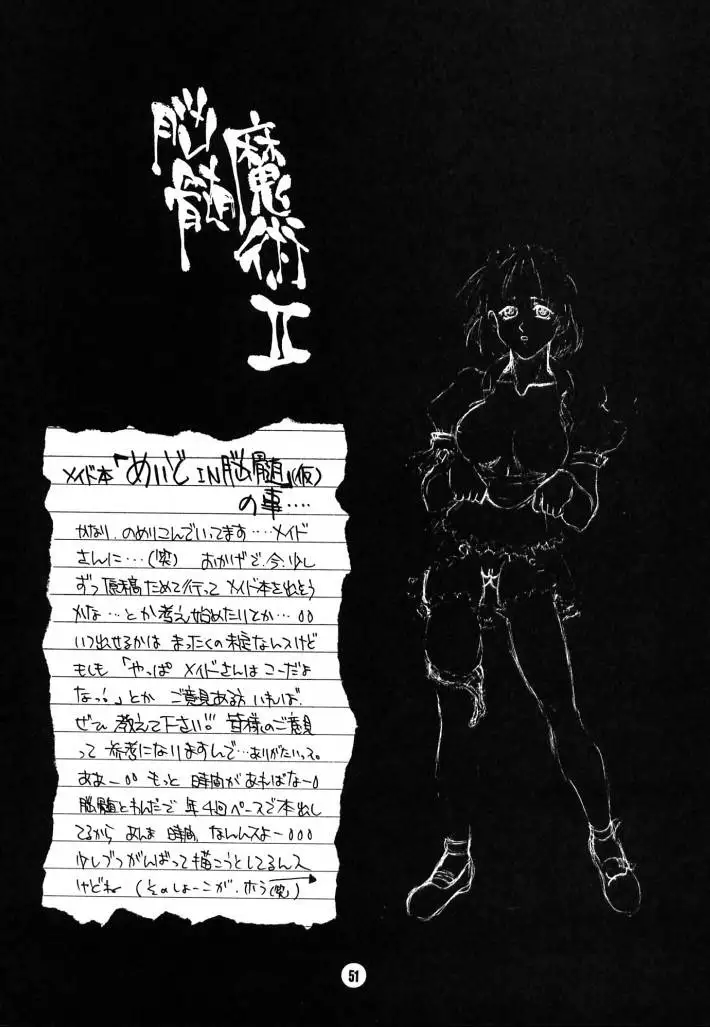 魔術II
脳髄
メイド本「めいどIN脳髄」(仮)
の事‥‥
かなり、のめりこんでいってます‥‥メイド
さんに‥‥(笑) おかげで、今、少し
ずつ原稿ためて行って メイド本を出そう
かな‥‥とか考え始めたりとか‥‥
いつ出せるかは まったくの未定なんスけど
もしも「やっぱ メイドさんはこーだよ
なっ!」とか ご意見ある方 いれば、
ぜひ 教えて下さい!! 皆様のご意見
って 参考になりますんで‥‥ありがたいっス。
ああー もっと 時間があればなー
脳髄とわんだで 年4回ペースで本出し
てるから あんま 時間 ないんスよー
少しづつがんばって描こうとしてるんス
けどね (そのしょーこが、ホラ(笑))
51